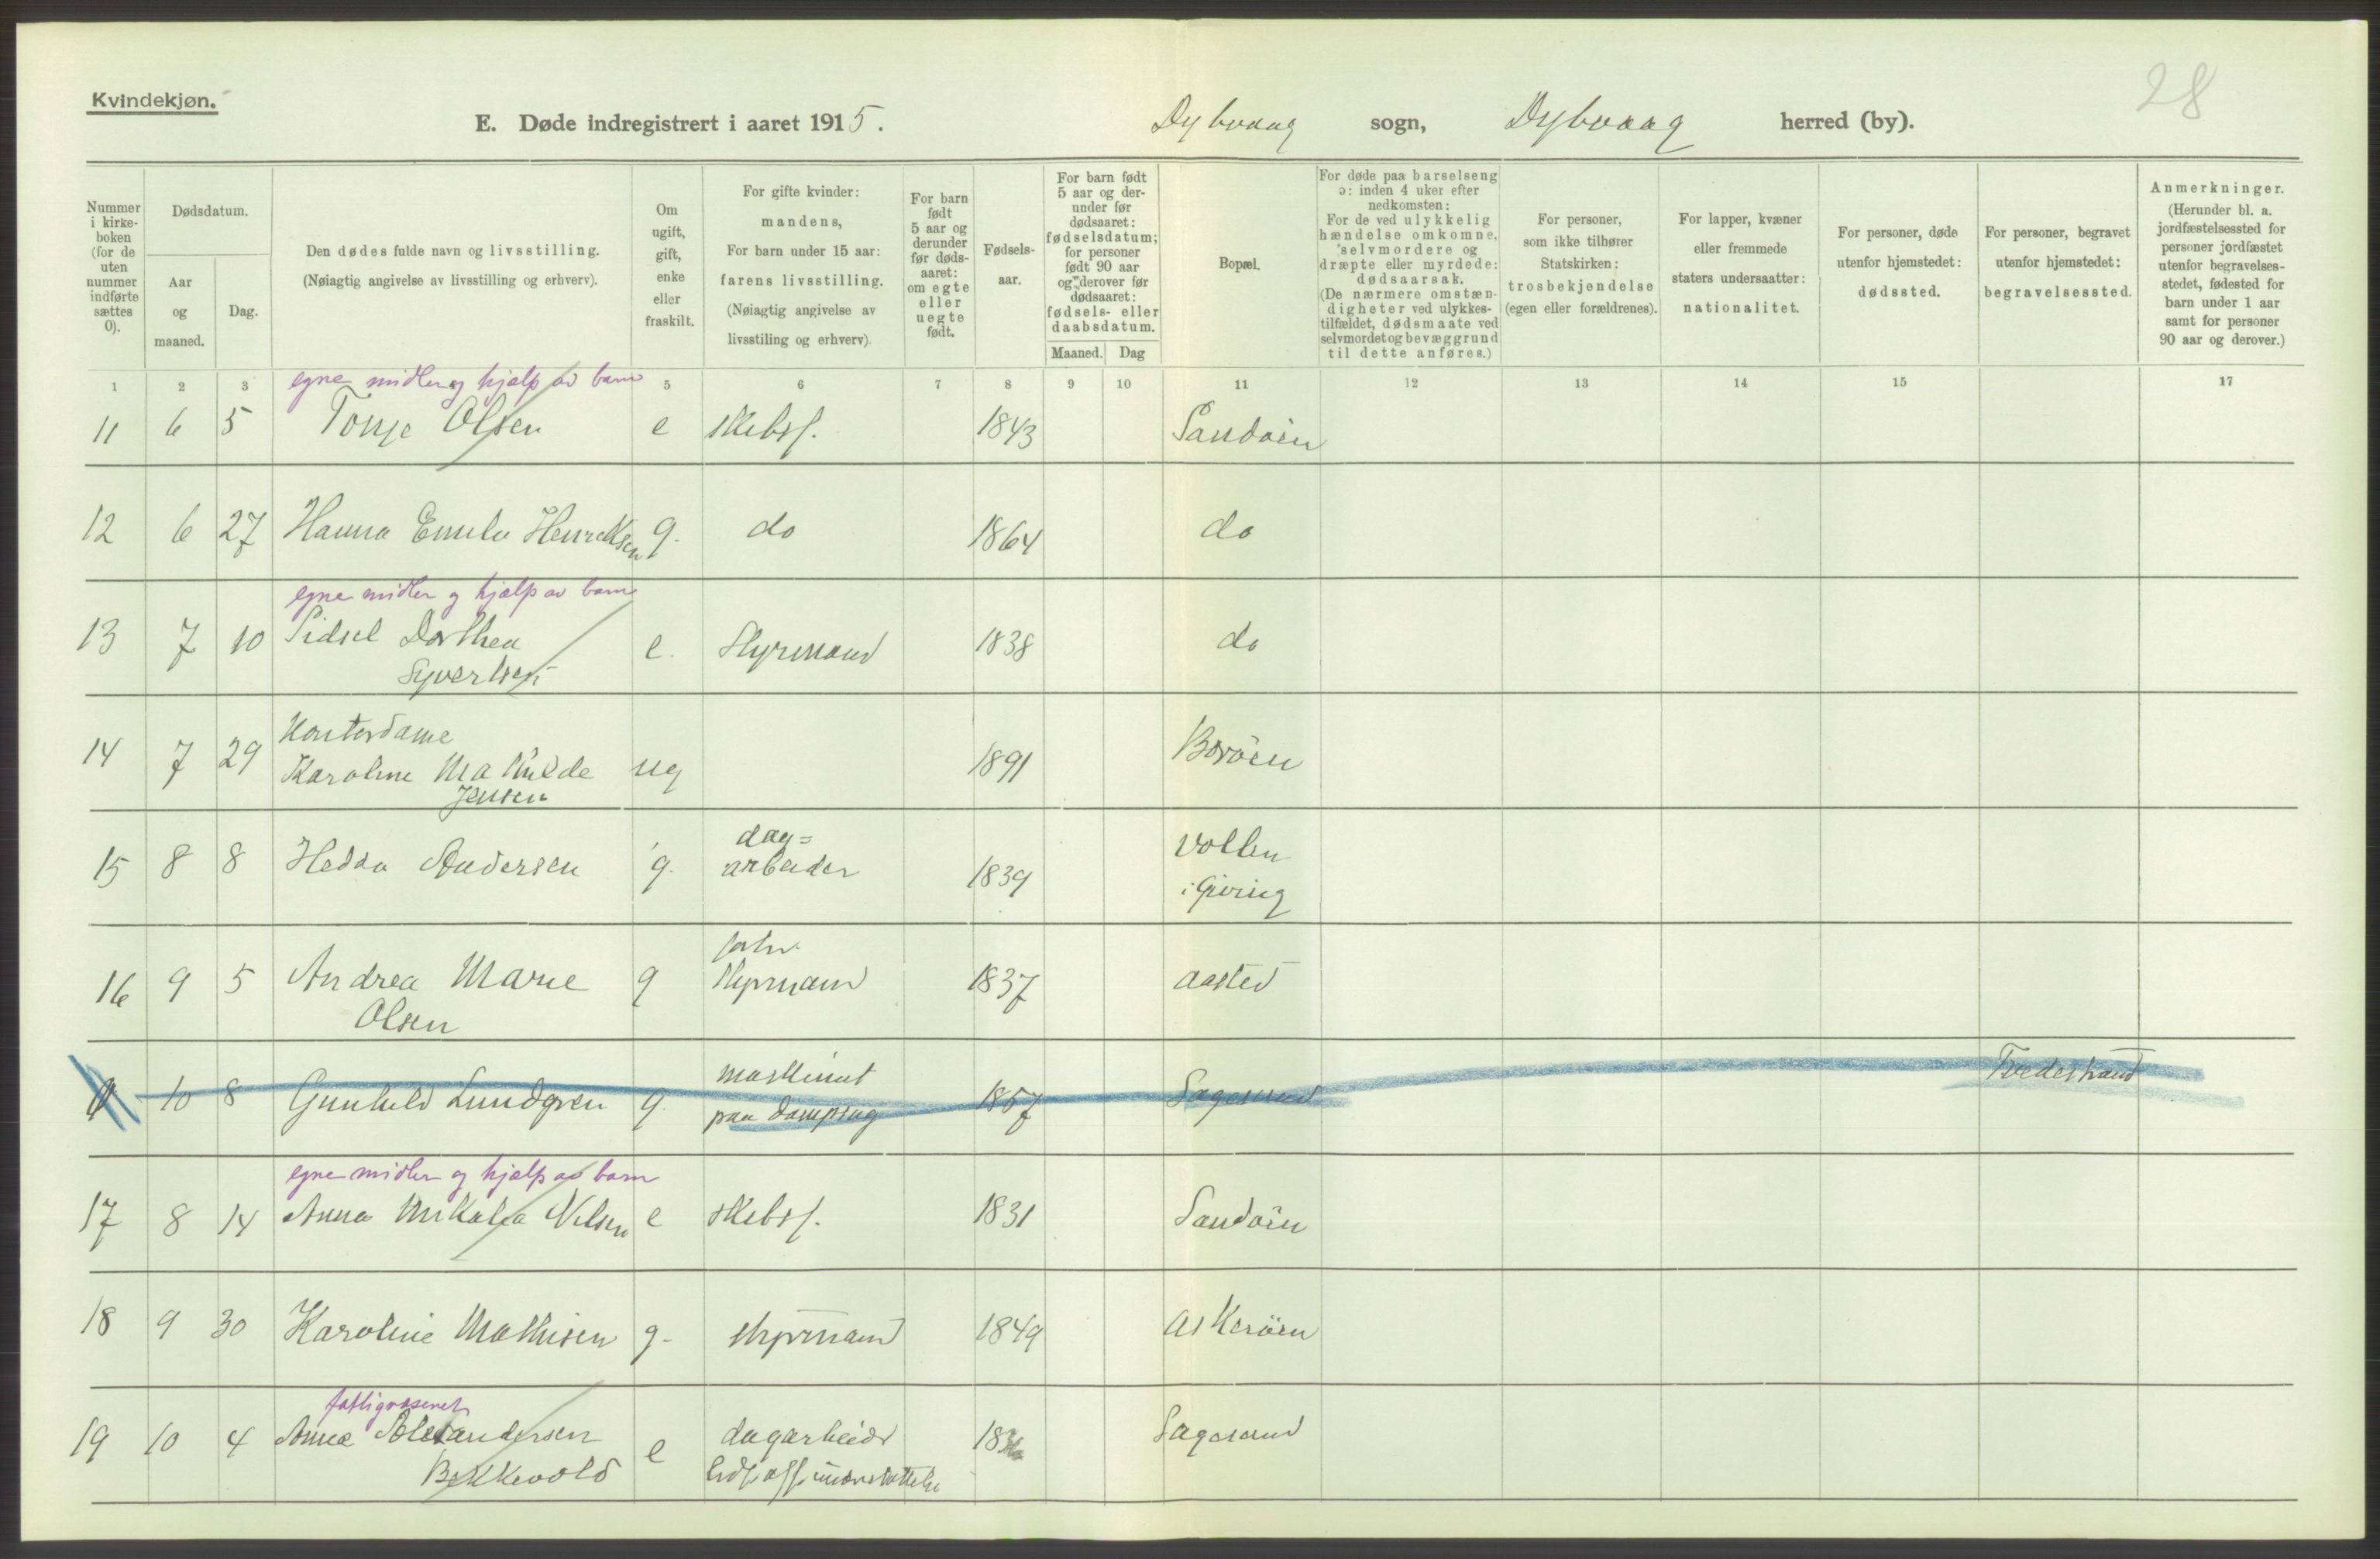 Kvindekjøn.
28
E. Døde indregistrert i aaret 1915.
Dybvaag sogn, Dybvaag herred (by).
Nummer i kirke-boken (for de uten nummer indførte sættes 0).
Dødsdatum.
Aar og maaned.
Dag.
Den dødes fulde navn og livsstilling.
(Nøiagtig angivelse av livsstilling og erhverv).
Om ugift, gift, enke eller fraskilt.
For gifte kvinder: mandens,
For barn under 15 aar: farens livsstilling.
(Nøiagtig angivelse av livsstiling og erhverv).
For barn født 5 aar og derunder før døds-aaret: om egte eller uegte født.
Fødsels-aar.
For barn født 5 aar og der-under før dødsaaret: fødselsdatum; for personer født 90 aar og derover før dødsaaret: fødsels- eller daabsdatum.
Maaned. Dag
Bopæl.
For døde paa barselseng ɔ: inden 4 uker efter nedkomsten:
For de ved ulykkelig hændelse omkomne, selvmordere og dræpte eller myrdede: dødsaarsak.
(De nærmere omstæn-digheter ved ulykkes-tilfældet, dødsmaate ved selvmordet og bevæggrund til dette anføres.)
For personer, som ikke tilhører Statskirken: trosbekjendelse (egen eller forældrenes).
For lapper, kvæner eller fremmede staters undersaatter: nationalitet.
For personer, døde utenfor hjemstedet: dødssted.
For personer, begravet utenfor hjemstedet: begravelsessted.
Anmerkninger.
(Herunder bl. a. jordfæstelsessted for personer jordfæstet utenfor begravelses-stedet, fødested for barn under 1 aar samt for personer 90 aar og derover.)
1 2 3 5 6 7 8 9 10 11 12 13 14 15 17
egne midler og hjælp av barn
11 6 5 Tonje Olsen e skibsf. 1843 Sandøen
12 6 27 Hanna Emilie Henriksen g. do 1864 do
egne midler og hjælp av barn
13 7 10 Sidsel Dorthea e. Styrmand 1838 do
Syvertsen
Kontordame
14 7 29 Karoline Mathilde ug 1891 Borøen
Jensen
dag=
15 8 8 Hedda Andersen g. arbeider 1839 Vollen
i Gjeving
forhv.
16 9 5 Andrea Marie g Styrmand 1837 Aasted
Olsen
maskinist Tvedestrand
0 10 8 Gunhild Lundgren g. paa dampsag 1857 Sagesund
egne midler og hjælp av barn
17 8 14 Anna Nikolea Nilsen e skibsf. 1831 Sandøen
18 9 30 Karoline Mathisen g. styrmand 1849 Askerøen
fattigvæsenet
19 10 4 Anne Alexandersen e dagarbeider Sagesund
Bakkevold understøttelse